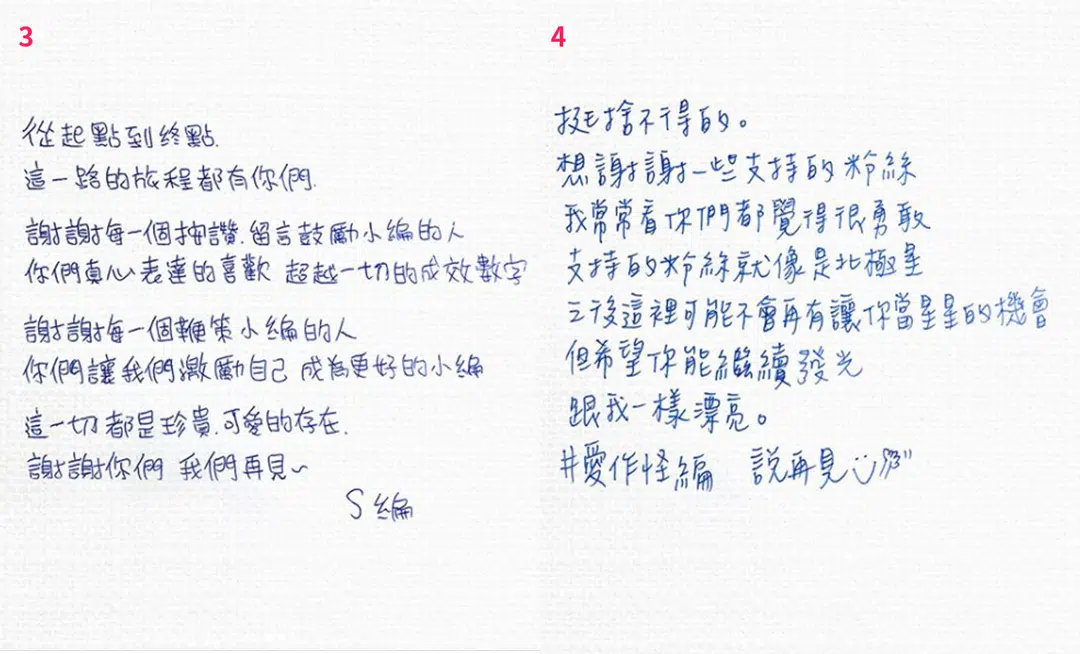 3
從起點到終點.
這一路的旅程都有你們.
謝謝每一個按讚.留言鼓勵小編的人
你們真心表達的喜歡 超越一切的成效數字
謝謝每一個鞭策小編的人
你們讓我們激勵自己 成為更好的小編
這一切都是珍貴.可愛的存在.
謝謝你們 我們再見~
S編
4
挺捨不得的。
想謝謝一些支持的粉絲
我常常看你們都覺得很勇敢
支持的粉絲就像是北極星
之後這裡可能不會再有讓你當星星的機會
但希望你能繼續發光
跟我一樣漂亮。
#愛作怪編 說再見